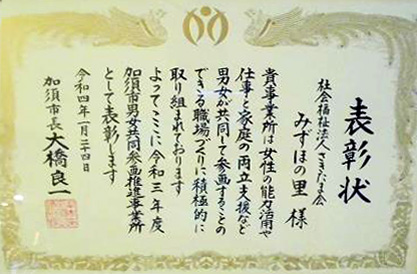 表彰状
社会福祉法人 さきたま会
みずほの里 様
貴事業所は女性の能力活用や
仕事と家庭の両立支援など
男女が共同して参画することの
できる職場づくりに積極的に
取り組まれております
よってここに令和三年度
加須市男女共同参画推進事業所
として表彰します
令和四年一月二十四日
加須市長 大橋良一